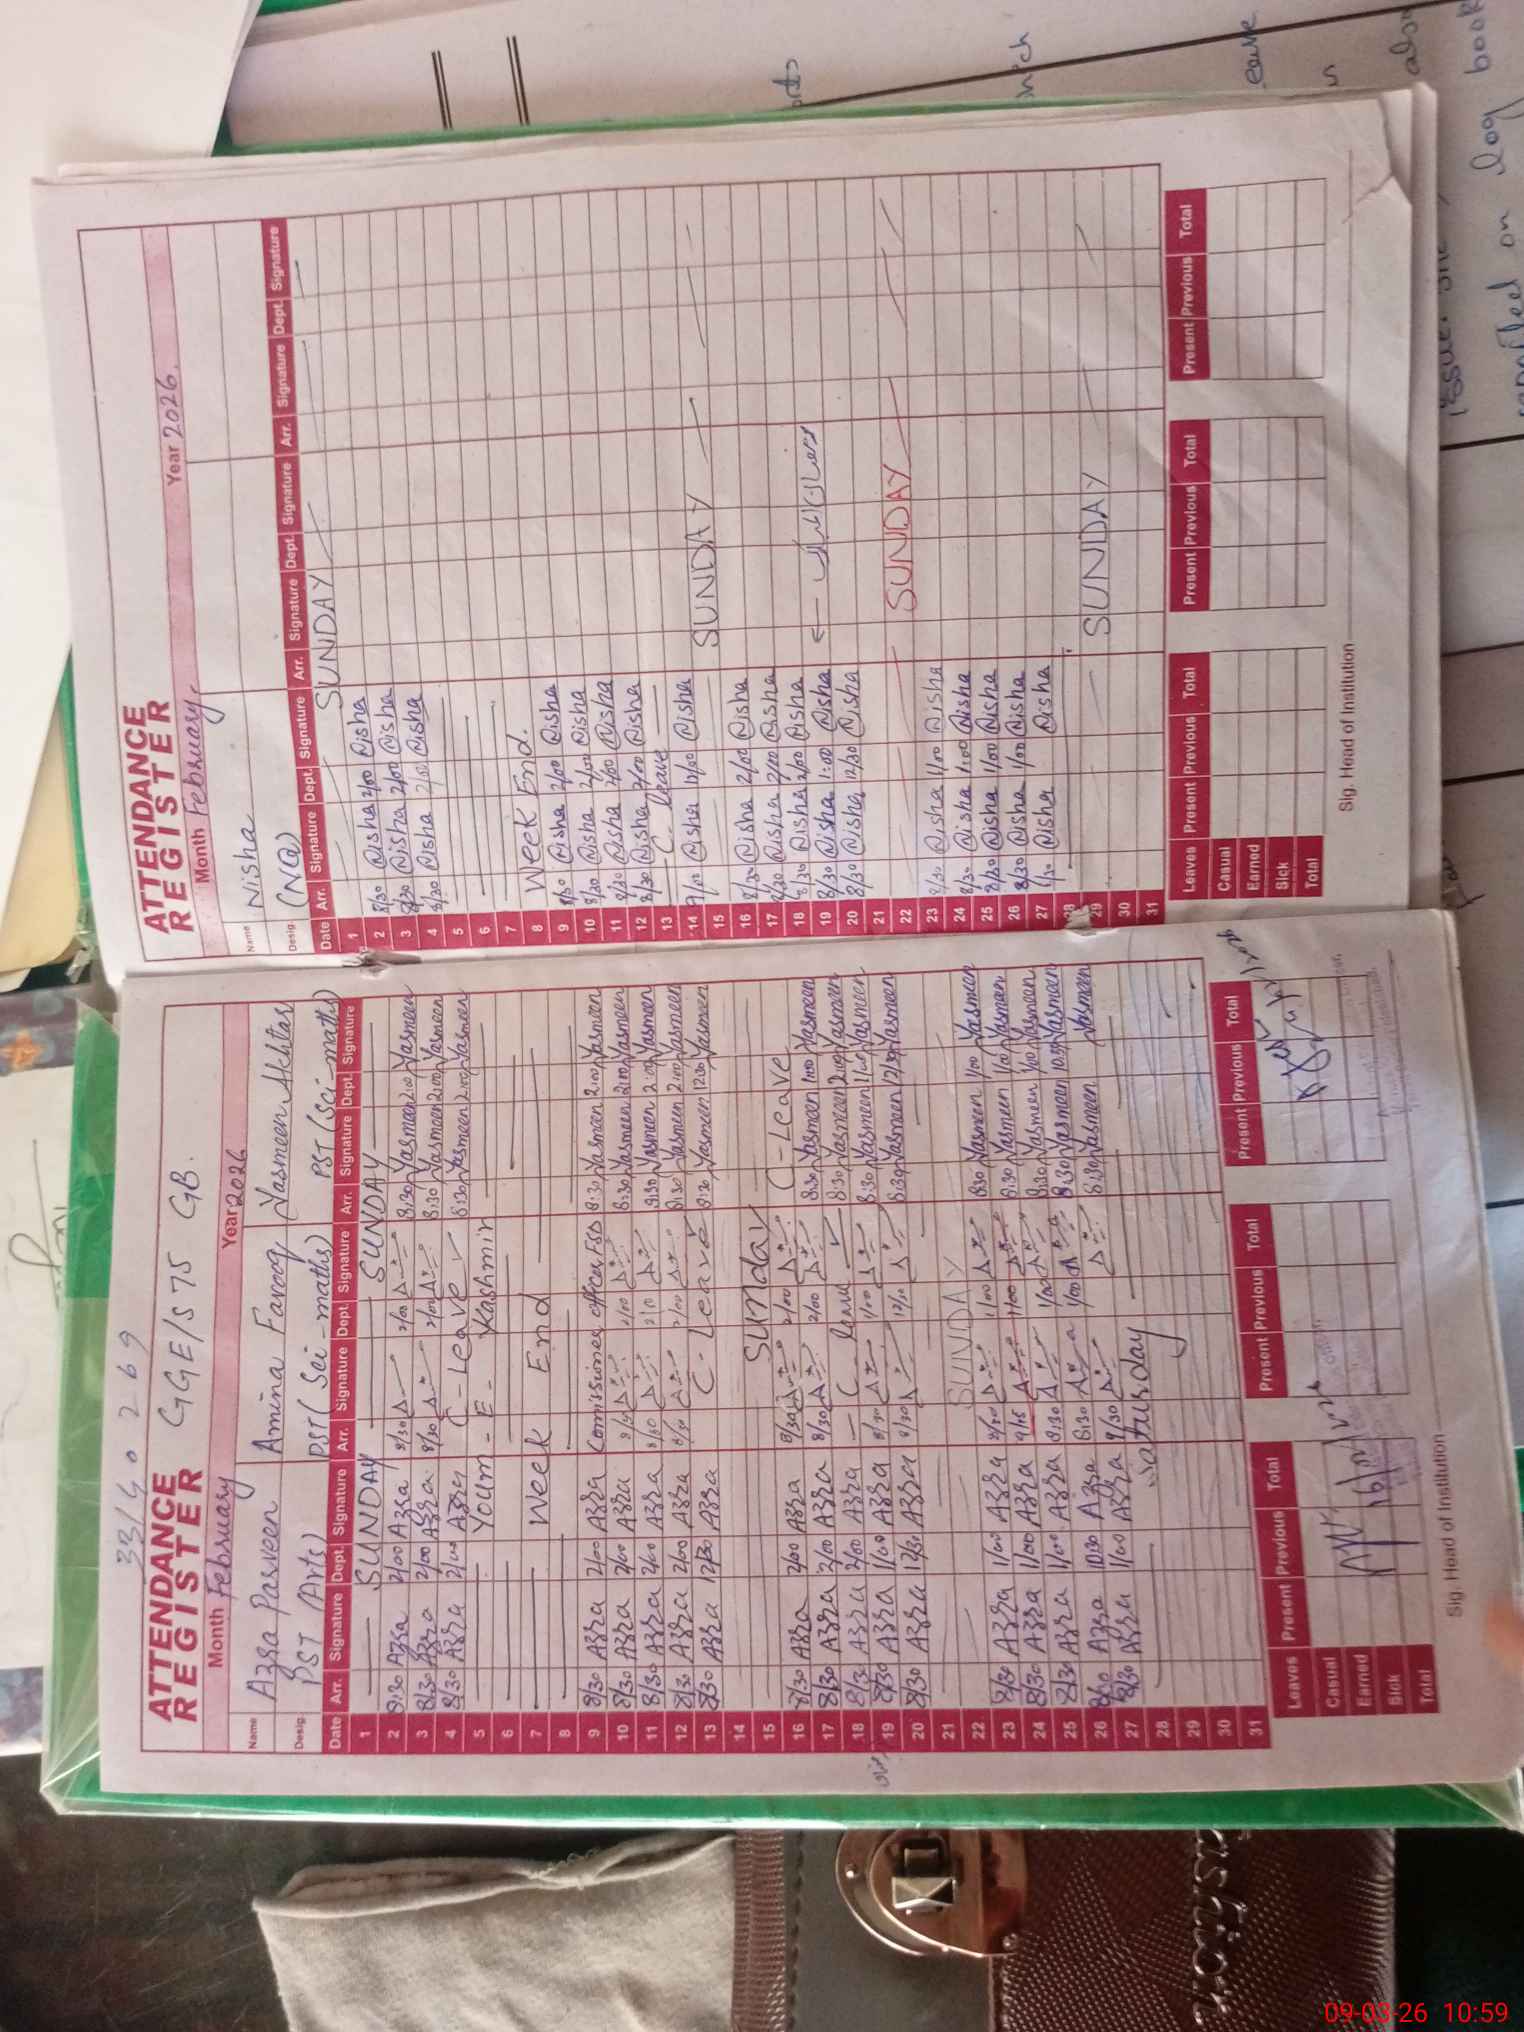 33140269
ATTENDANCE REGISTER
GGE/S 75 GB.
Month February Year 2026
Name Azra Parveen Amina Farooq Yasmeen Akhtar
Desig. PST Arts) PST (Sci-maths) PST (Sci-maths)
Date Arr. Signature Dept. Signature Arr. Signature Dept. Signature Arr. Signature Dept. Signature
1 SUNDAY SUNDAY
2 8:30 Azra 2/00 Azra 8/30 2/00 8:30 Yasmeen 2:00 Yasmeen
3 8/30 Azra 2/00 Azra 8/30 2/00 8:30 Yasmeen 2:00 Yasmeen
4 8/30 Azra 2/00 Azra C-Leave 8:30 Yasmeen 2:00 Yasmeen
5 Youm-E-Kashmir
6
7 Week End
8
9 8/30 Azra 2/00 Azra Comissioner office FSD 8:30 Yasmeen 2:00 Yasmeen
10 8/30 Azra 2/00 Azra 8/30 2/00 8:30 Yasmeen 2:00 Yasmeen
11 8/30 Azra 2/00 Azra 8/30 8:30 Yasmeen 2:00 Yasmeen
12 8/30 Azra 2/00 Azra 8/30 2/00 8:30 Yasmeen 2:00 Yasmeen
13 8/30 Azra 12/30 Azra C-Leave 8:30 Yasmeen 12:30 Yasmeen
14
15 Sunday C-Leave
16 8/30 Azra 2/00 Azra 8/30 2/00 8:30 Yasmeen 1:00 Yasmeen
17 8/30 Azra 2/00 Azra 8/30 2/00 8:30 Yasmeen 2:00 Yasmeen
18 8/30 Azra 2/00 Azra C Leave 8:30 Yasmeen Yasmeen
19 8/30 Azra 1/00 Azra 8/30 1/00 8:30 Yasmeen 12/30 Yasmeen
20 8/30 Azra 12/30 Azra 8/30
21 SUNDAY
22 8/30 Azra 1/00 Azra 1/00 8:30 Yasmeen 1/00 Yasmeen
23 8/30 Azra 1/00 Azra 9/15 1/00 8:30 Yasmeen 1/00 Yasmeen
24 8/30 Azra 1/00 Azra 8:30 1/00 8:30 Yasmeen 1/00 Yasmeen
25 8/30 Azra 10:30 Azra 8:30 1/00 8:30 Yasmeen Yasmeen
26 8/30 Azra 1/00 Azra 8/30 8:30 Yasmeen Yasmeen
27 Saturday
28
29
30
31
Leaves Present Previous Total Present Previous Total Present Previous Total
Casual
Earned
Sick
Total
Sig. Head of Institution
ATTENDANCE REGISTER
Month February. Year 2026.
Name Nisha
Desig. (NQ)
Date Arr. Signature Dept. Signature Arr. Signature Dept. Signature Arr. Signature Dept. Signature
1 SUNDAY
2 8/30 Qisha 2/00 Qisha
3 8/30 Qisha 2/00 Qisha
4 8/30 Qisha 2/00 Qisha
5
6
7 Week End.
8
9 8/30 Qisha 2/00 Qisha
10 8/30 Qisha 2/00 Qisha
11 8/30 Qisha 2/00 Qisha
12 8/30 Qisha 2/00 Qisha
13 C Leave
14 9/00 Qisha 12/00 Qisha
15 SUNDAY
16 8/30 Qisha 2/00 Qisha
17 8/30 Qisha 2/00 Qisha
18 8/30 Qisha 2/00 Qisha
19 8/30 Qisha 1:00 Qisha
20 8/30 Qisha 12/30 Qisha
21
22 SUNDAY
23 8/30 Qisha 1/00 Qisha
24 8/30 Qisha 1:00 Qisha
25 8/30 Qisha 1/00 Qisha
26 8/30 Qisha 1/00 Qisha
27 Qisha Qisha
28
29 SUNDAY
30
31
Leaves Present Previous Total Present Previous Total Present Previous Total
Casual
Earned
Sick
Total
Sig. Head of Institution
also
log book
on
09-03-26 10:59